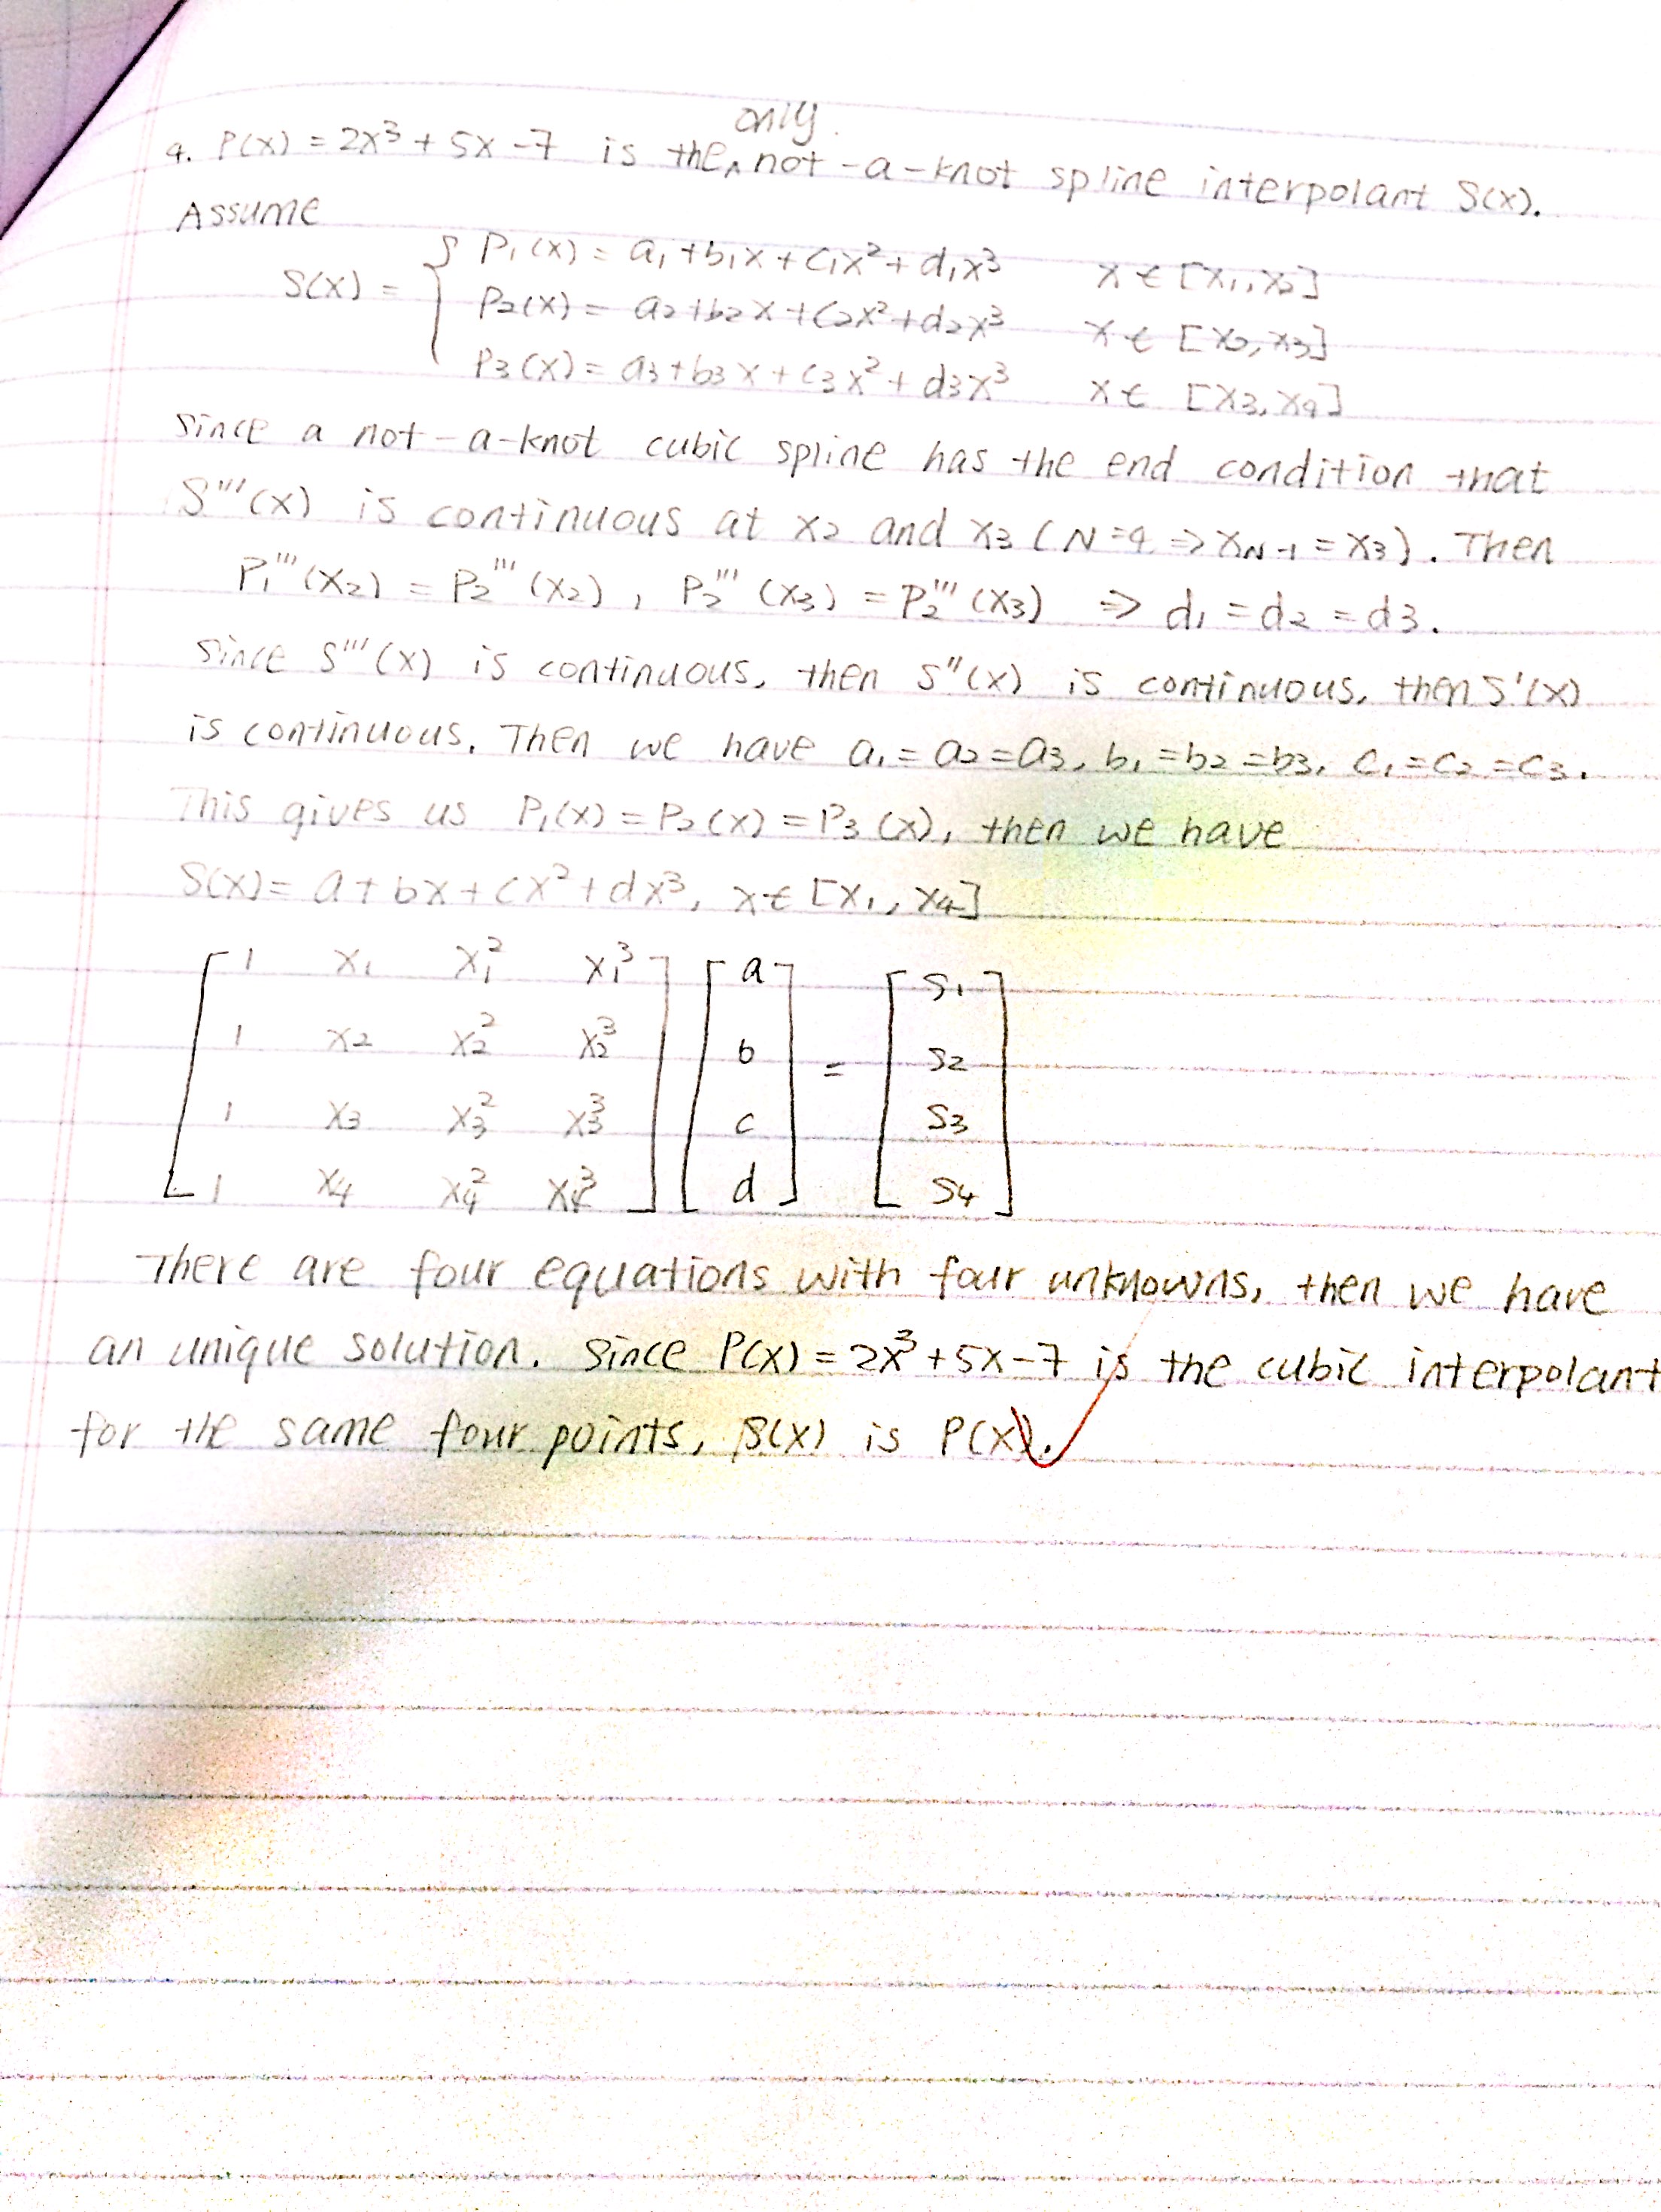 only.
4. P(x) = 2x³ + 5x - 7 is the ∧ not-a-knot spline interpolant S(x).
Assume
S(x) = { P₁(x) = a₁ + b₁x + c₁x² + d₁x³ x ∈ [x₁, x₂]
P₂(x) = a₂ + b₂x + c₂x² + d₂x³ x ∈ [x₂, x₃]
P₃(x) = a₃ + b₃x + c₃x² + d₃x³ x ∈ [x₃, x₄]
Since a not-a-knot cubic spline has the end condition that
S'''(x) is continuous at x₂ and x₃ (N=4 => x_N-1 = x₃). Then
P₁'''(x₂) = P₂'''(x₂), P₂'''(x₃) = P₂'''(x₃) => d₁ = d₂ = d₃.
Since S'''(x) is continuous, then S''(x) is continuous, then S'(x)
is continuous. Then we have a₁ = a₂ = a₃, b₁ = b₂ = b₃, c₁ = c₂ = c₃.
This gives us P₁(x) = P₂(x) = P₃(x), then we have
S(x) = a + bx + cx² + dx³, x ∈ [x₁, x₄]
[ 1 x₁ x₁² x₁³ ] [ a ] [ S₁ ]
1 x₂ x₂² x₂³ b = S₂
1 x₃ x₃² x₃³ c S₃
1 x₄ x₄² x₄³ d S₄
There are four equations with four unknowns, then we have
an unique solution. Since P(x) = 2x³ + 5x - 7 is the cubic interpolant
for the same four points, S(x) is P(x).